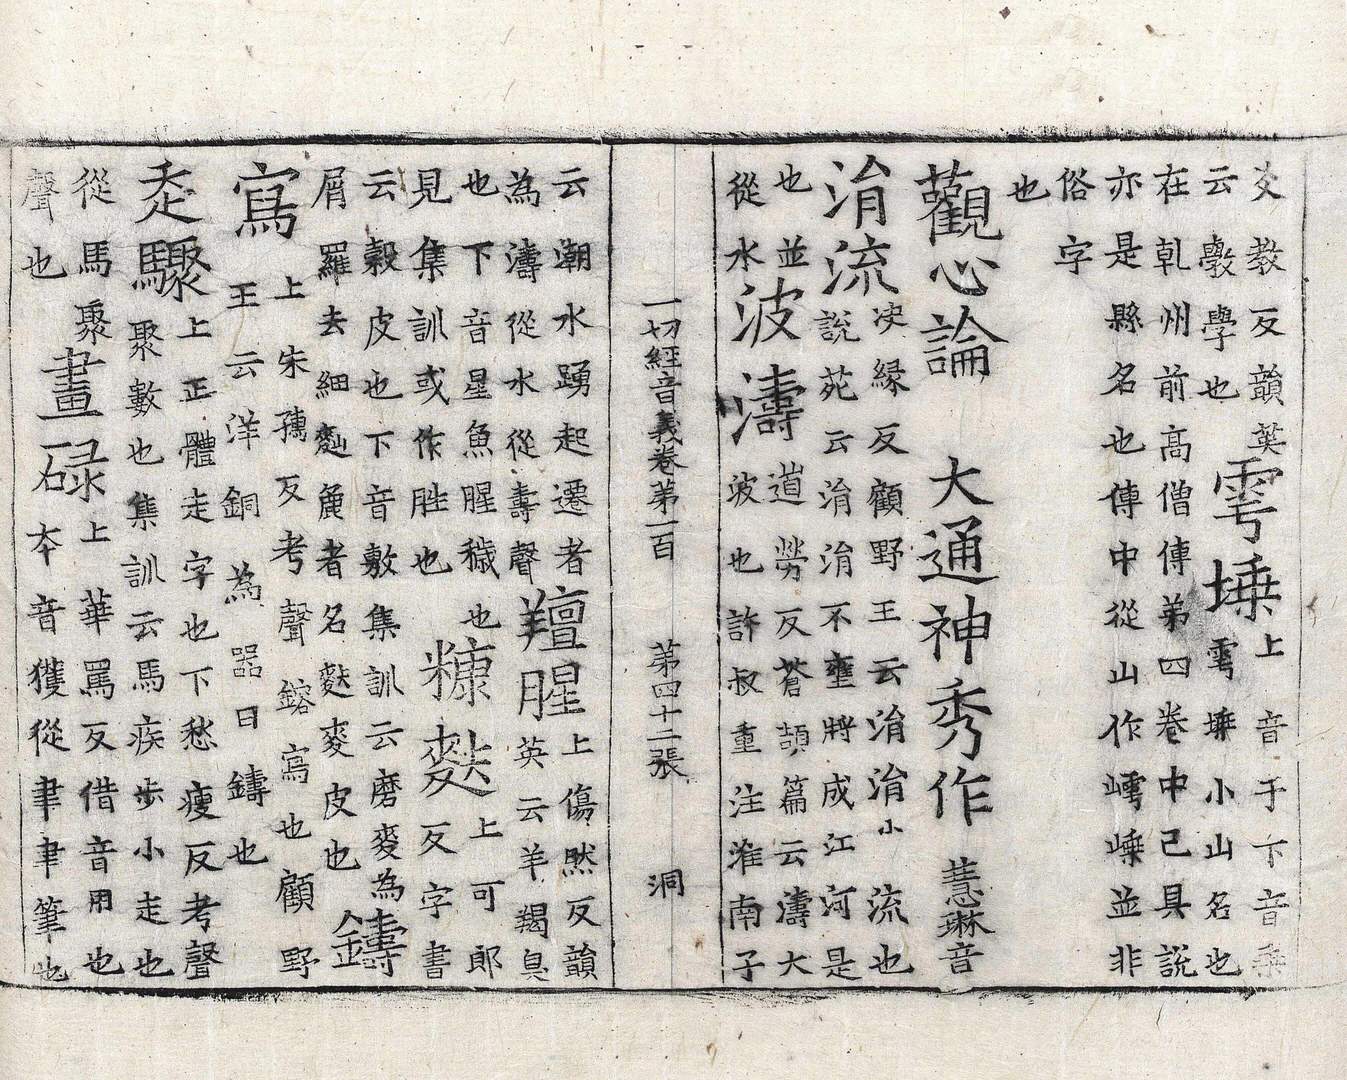 爻教反韻英
云斆學也雩埵上音于下音垂
雩埵小山名也
在乹州前高僧傳苐四卷中已具說
亦是縣名也傳中從山作嶀㟽並非
俗字
也
觀心論 大通神秀作 慧琳音
涓流决緣反顧野王云涓涓小流也
說苑云涓涓不壅將成江河是
也並波濤道勞反蒼頡篇云濤大
從水波也許叔重注淮南子
一切經音義卷第一百 第四十二張 洞
云潮水踴起遷者羶腥上傷然反韻
為濤從水從壽聲英云羊羯臭
也下音星魚腥穢也糠麩上可郎
見集訓或作胜也反字書
云穀皮也下音敷集訓云磨麥為
屑羅去細麪麁者名麩麥皮也鑄
寫上朱孺反考聲鎔寫也顧野
王云洋銅為器曰鑄也
走驟上正體走字也下愁瘦反考聲
聚數也集訓云馬疾步小走也
從馬聚畫碌上華罵反借音用也
聲也本音獲從聿聿筆也